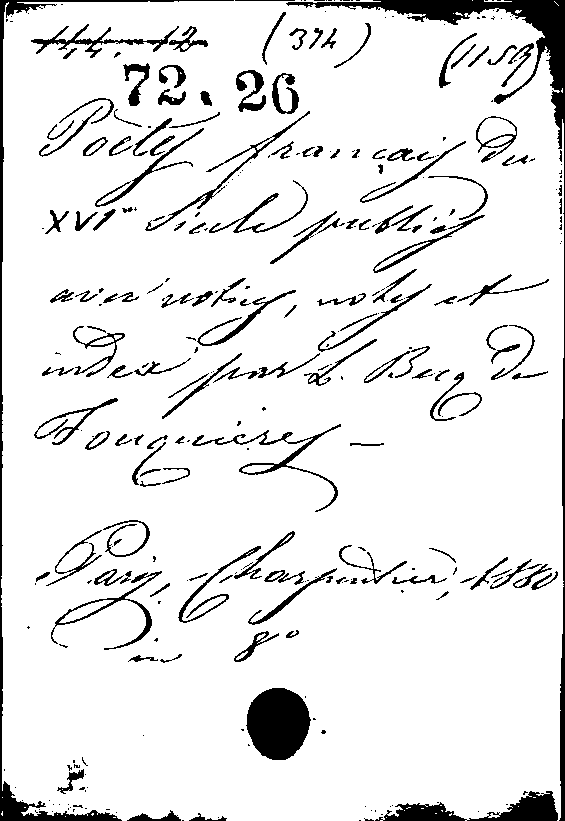 (374) (1159)
72. 26
Poètes français du
XVIme Siècle publiés
avec notices, notes et
index par L. Becq de
Fouquières —
Paris, Charpentier, 1880
in 8°